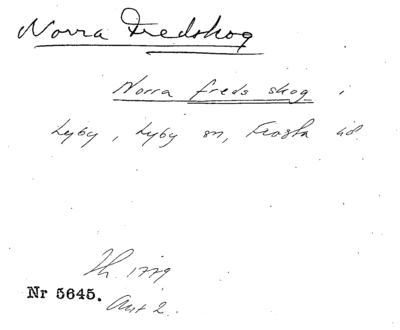 Norra Fredskog
Norra freds skog i
Lyby, Lyby sn, Frosta hd
Th. 1779
Nr 5645.
Akt 2.